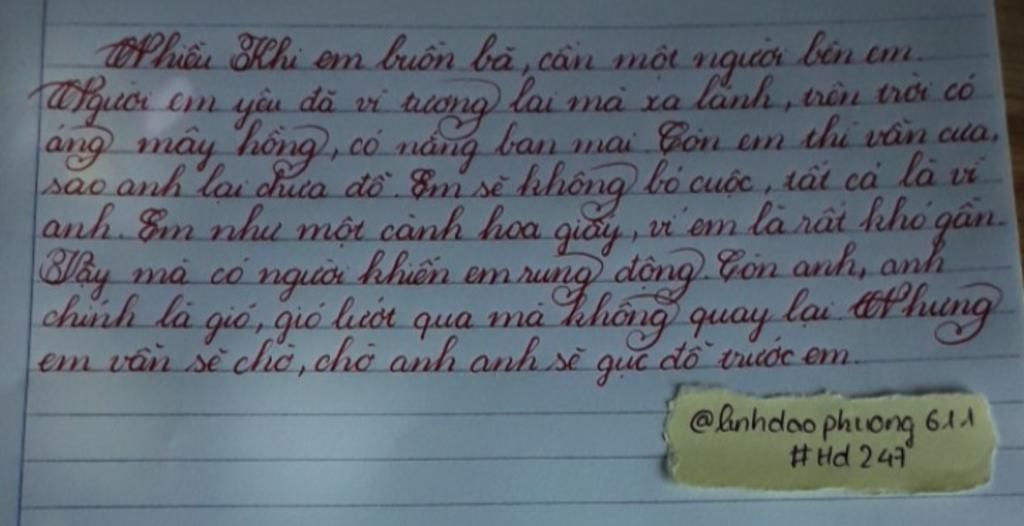 Nhiều Khi em buồn bã, cần một người bên em.
Người em yêu đã vì tương lai mà xa lánh, trên trời có
áng mây hồng, có nắng ban mai. Còn em thì vẫn cưa,
sao anh lại chưa đổ. Em sẽ không bỏ cuộc, tất cả là vì
anh. Em như một cành hoa giấy, vì em là rất khó gần.
Vậy mà có người khiến em rung động. Còn anh, anh
chính là gió, gió lướt qua mà không quay lại. Nhưng
em vẫn sẽ chờ, chờ anh anh sẽ gục đổ trước em.
@linhdaophuong 611
#Hd 247